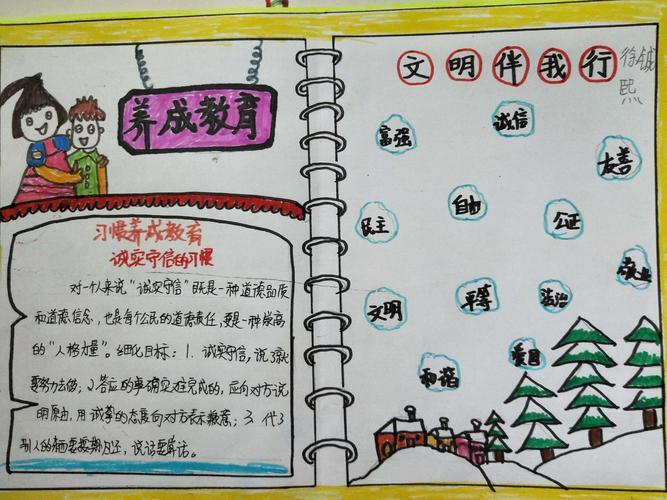 养成教育
习惯养成教育
诚实守信的习惯
对一个人来说"诚实守信"既是一种道德品质
和道德信念,也是每个公民的道德责任,更是一种崇高
的"人格力量"。细化目标:1.诚实守信,说了就
要努力去做;2.答应的事确实难完成的,应向对方说
明原由,用诚挚的态度向对方表示歉意;3.代了
别人的 要按期归还,说话要算话。
文明伴我行
徐铖
熙
富强
诚信
友善
民主
自由
公正
敬业
文明
平等
法治
和谐
爱国